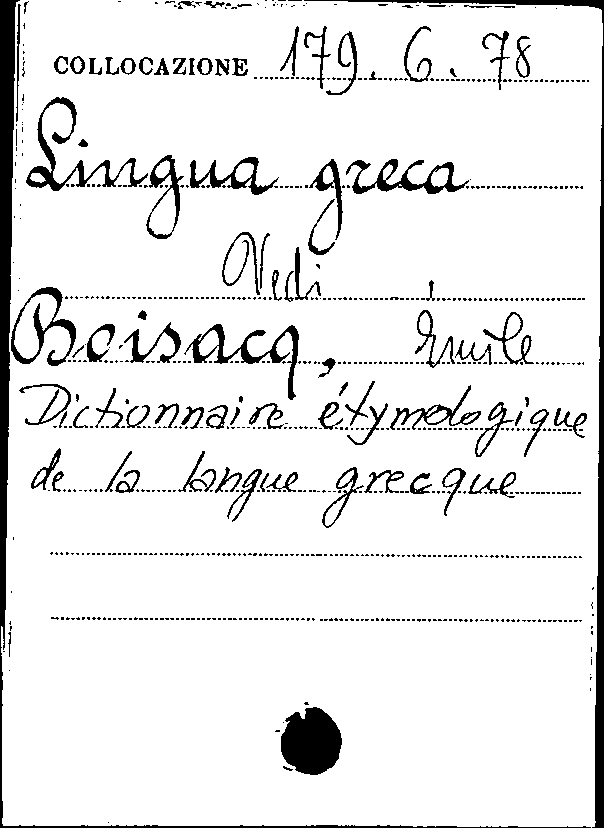 COLLOCAZIONE 179. 6. 78
Lingua greca
Vedi
Boisacq, Émile
Dictionnaire étymologique
de la langue grecque